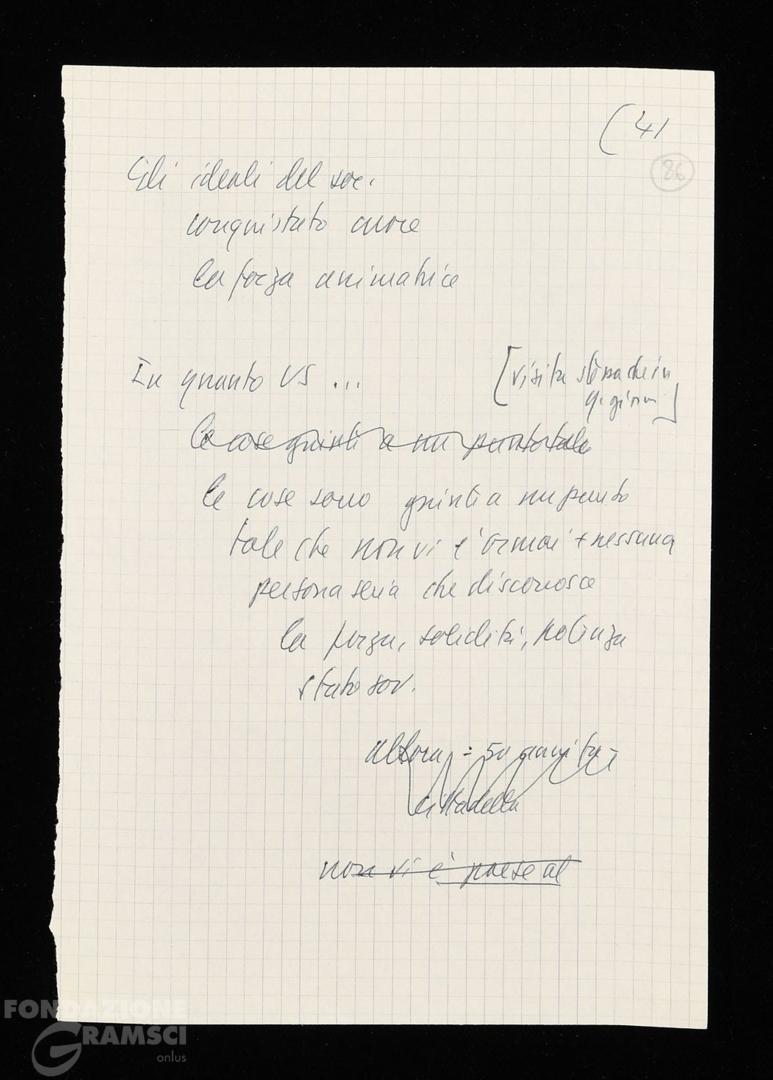 (41
86
Gli ideali del soc.
conquistato cuore
la forza animatrice
In quanto US ...
[visita
le cose giunti a un punto tale
le cose sono giunti a un punto
tale che non vi è ormai + nessuna
persona seria che disconosca
la forza, solidità, potenza
stato sov.
allora = 50
cittadella
non vi è paese al
FONDAZIONE
GRAMSCI
onlus